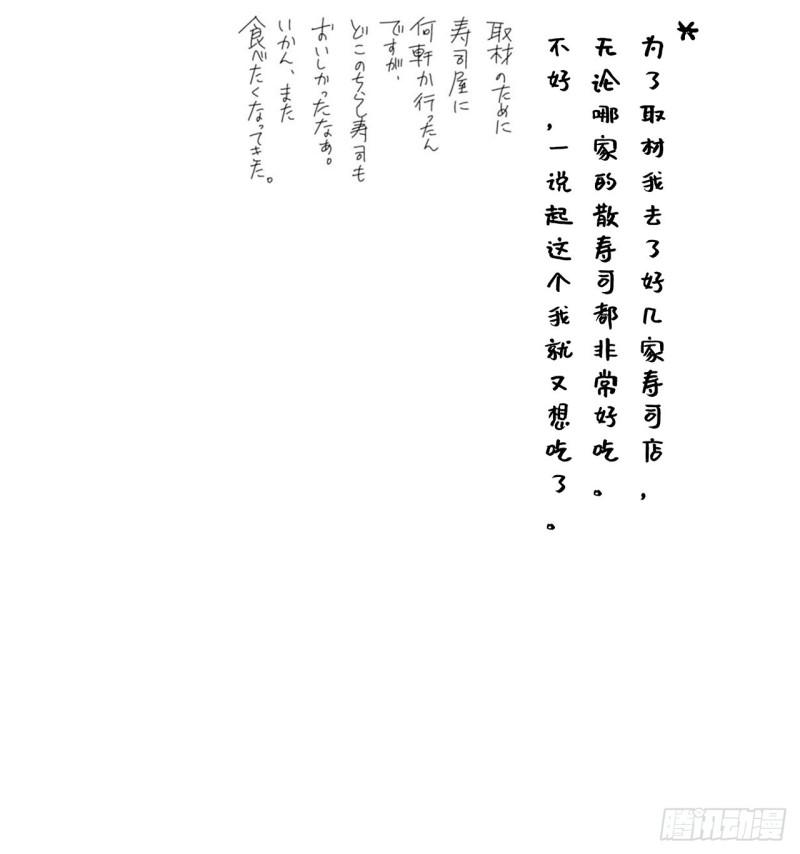 *
为了取材我去了好几家寿司店，
无论哪家的散寿司都非常好吃。
不好，一说起这个我就又想吃了。
取材のために
寿司屋に
何軒か行ったん
ですが、
どこのちらし寿司も
おいしかったなぁ。
いかん、また
食べたくなってきた。
腾讯动漫